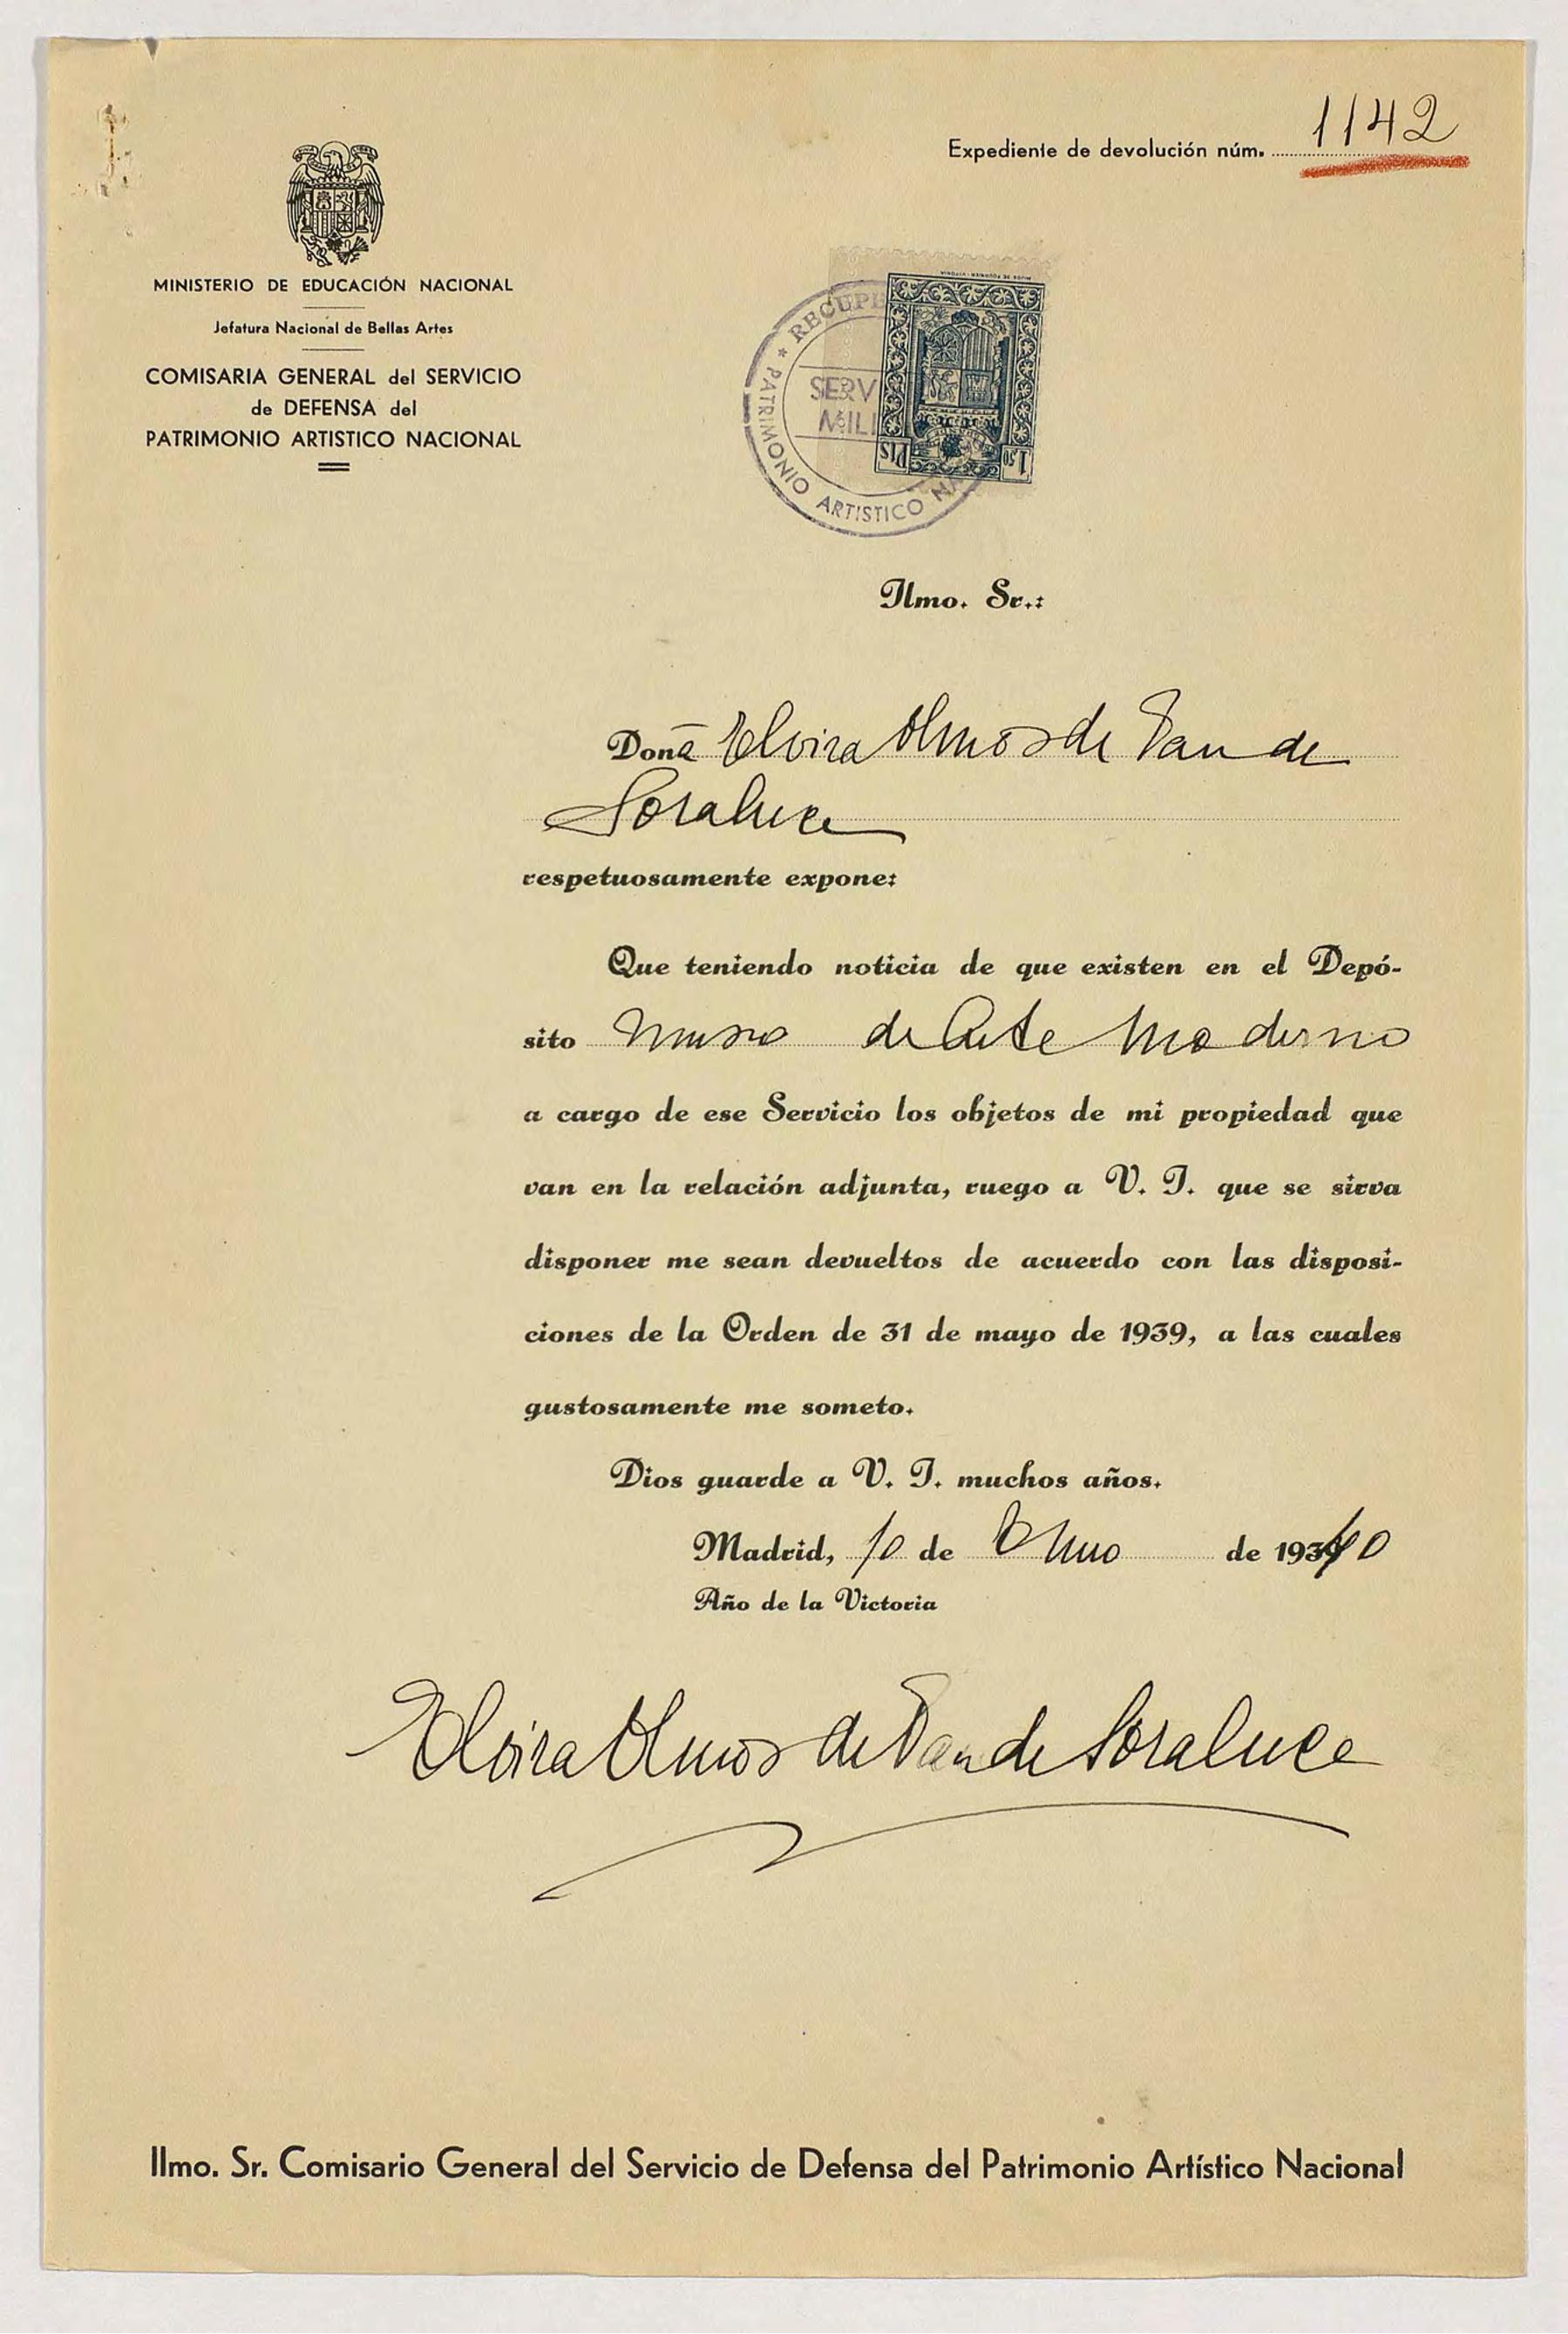 Expediente de devolución núm. 1142
MINISTERIO DE EDUCACIÓN NACIONAL
Jefatura Nacional de Bellas Artes
COMISARIA GENERAL del SERVICIO
de DEFENSA del
PATRIMONIO ARTISTICO NACIONAL
HIJOS DE FOURNIER - VITORIA
* RECUPE
SERV
MILI
PATRIMONIO ARTISTICO NA
1,50 PTS
Ilmo. Sr.:
Doña Elvira Olmos de Pan de
Soraluce
respetuosamente expone:
Que teniendo noticia de que existen en el Depó-
sito Museo de Arte Moderno
a cargo de ese Servicio los objetos de mi propiedad que
van en la relación adjunta, ruego a V. I. que se sirva
disponer me sean devueltos de acuerdo con las disposi-
ciones de la Orden de 31 de mayo de 1939, a las cuales
gustosamente me someto.
Dios guarde a V. I. muchos años.
Madrid, 10 de de 1940
Año de la Victoria
Elvira Olmos de Pan de Soraluce
Ilmo. Sr. Comisario General del Servicio de Defensa del Patrimonio Artístico Nacional